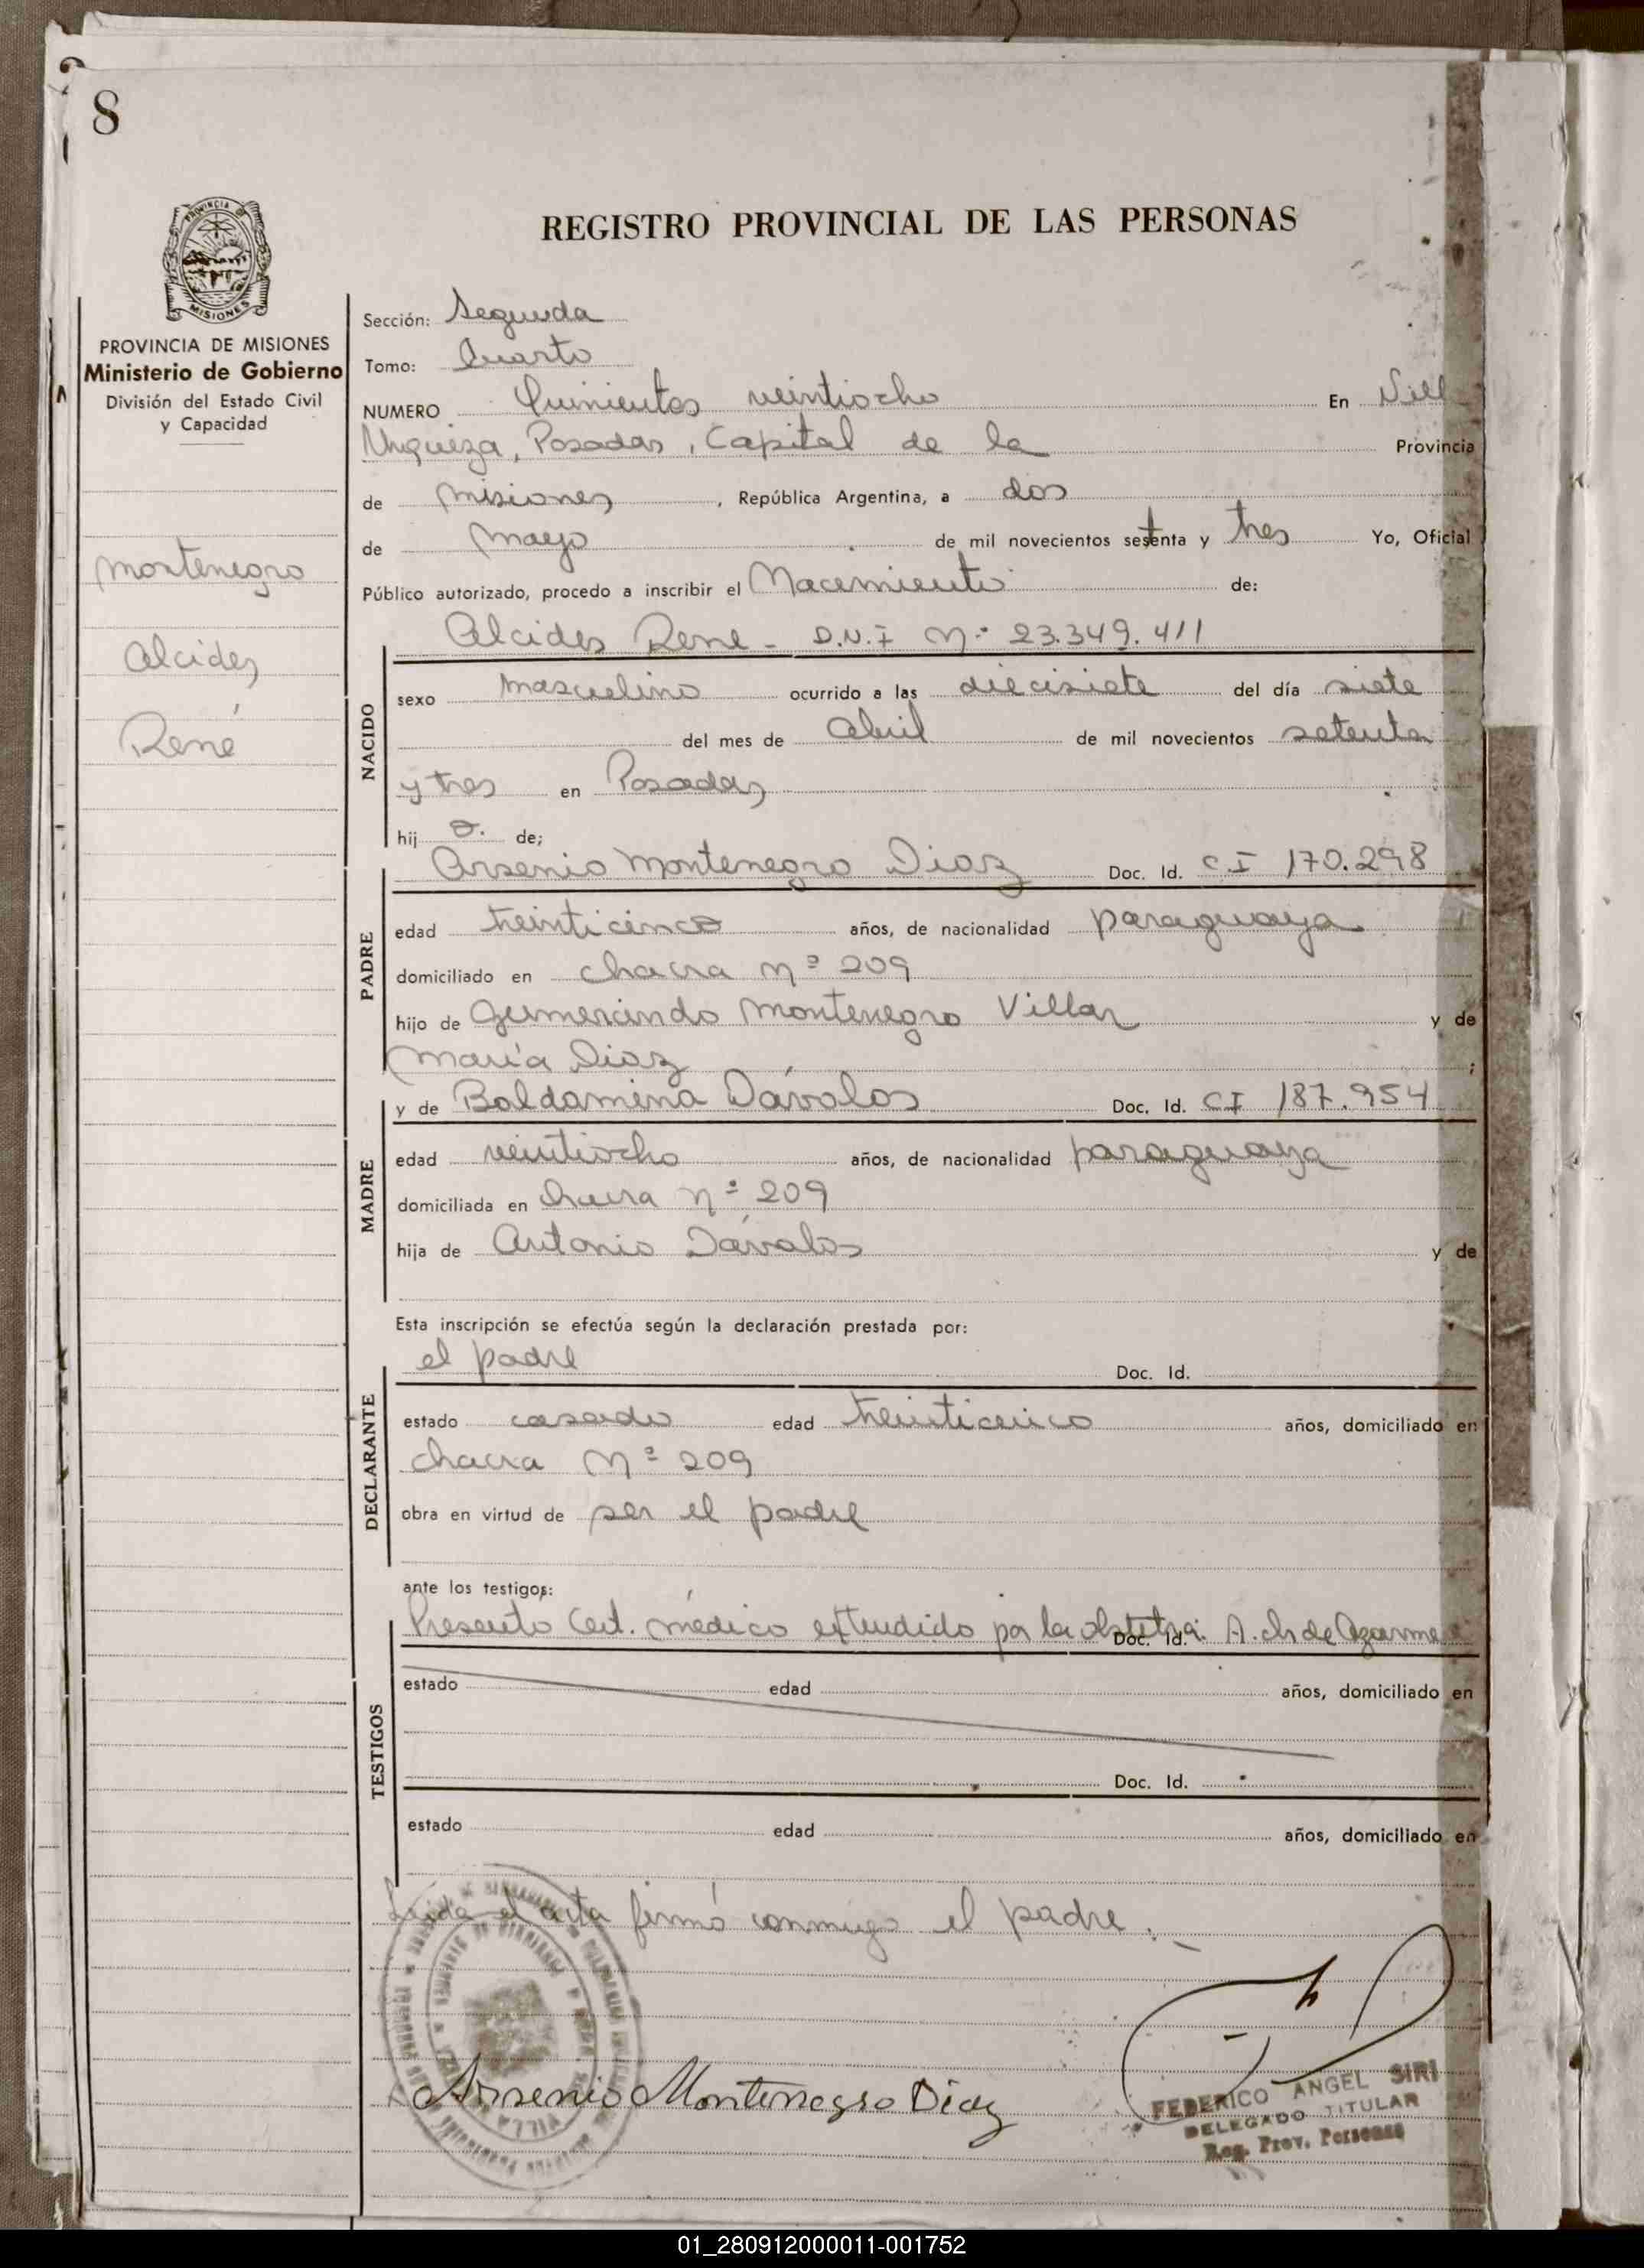 8
PROVINCIA DE MISIONES
MISIONES
PROVINCIA DE MISIONES
Ministerio de Gobierno
División del Estado Civil
y Capacidad
Montenegro
Alcides
René
REGISTRO PROVINCIAL DE LAS PERSONAS
Sección: Segunda
Tomo: Cuarto
NUMERO Quinientos veintiocho En Vill
Urquiza, Posadas, Capital de la Provincia
de Misiones, República Argentina, a dos
de mayo de mil novecientos setenta y tres Yo, Oficial
Público autorizado, procedo a inscribir el Nacimiento de:
Alcides Rene - D.N.I Nº 23.349.411
NACIDO
sexo masculino ocurrido a las diecisiete del día siete
del mes de Abril de mil novecientos setenta
y tres en Posadas
hij o. de;
Arsenio Montenegro Diaz Doc. Id. CI 170.298
PADRE
edad treinticinco años, de nacionalidad paraguaya
domiciliado en chacra Nº 209
hijo de Gumercindo Montenegro Villar y de
María Diaz ;
y de Baldamina Dávalos Doc. Id. CI 187.954
MADRE
edad veintiocho años, de nacionalidad paraguaya
domiciliada en chacra Nº 209
hija de Antonio Dávalos y de
Esta inscripción se efectúa según la declaración prestada por:
el padre Doc. Id.
DECLARANTE
estado casado edad treinticinco años, domiciliado en
chacra Nº 209
obra en virtud de ser el padre
ante los testigos:
Presento Cert. médico extendido por la obstetra: A. ch de Doc. Id.
TESTIGOS
estado edad años, domiciliado en
Doc. Id.
estado edad años, domiciliado en
Leida el acta firmó conmigo el padre.
Arsenio Montenegro Díaz
FEDERICO ANGEL SIRI
DELEGADO TITULAR
Reg. Prov. Personas
01_280912000011-001752